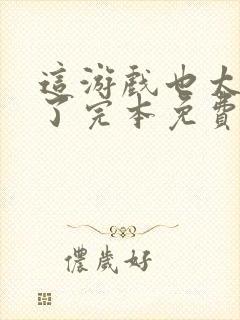 這游戲也太
了完本免費
儂歲好